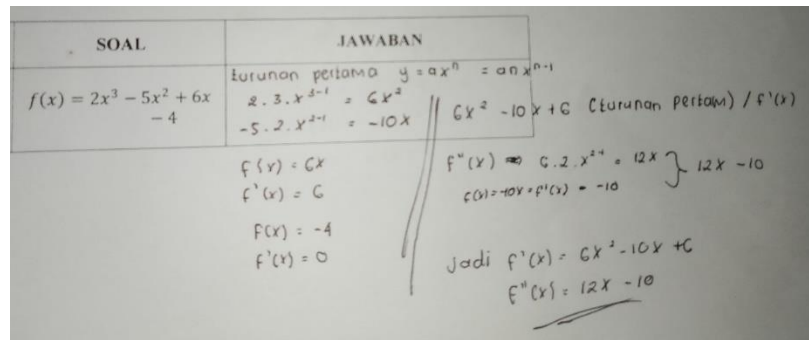 SOAL
JAWABAN
f(x) = 2x³ − 5x² + 6x
− 4
turunan pertama y = axⁿ = anxⁿ⁻¹
2 . 3 . x³⁻¹ = 6x²
-5 . 2 . x²⁻¹ = -10x
f(x) = 6x
f'(x) = 6
f(x) = -4
f'(x) = 0
6x² - 10x + 6 (turunan pertam) / f'(x)
f"(x) 6.2.x²⁻¹ = 12x } 12x - 10
f(x) = -10x = f'(x) = -10
jadi f'(x) = 6x² - 10x + 6
f"(x) = 12x - 10